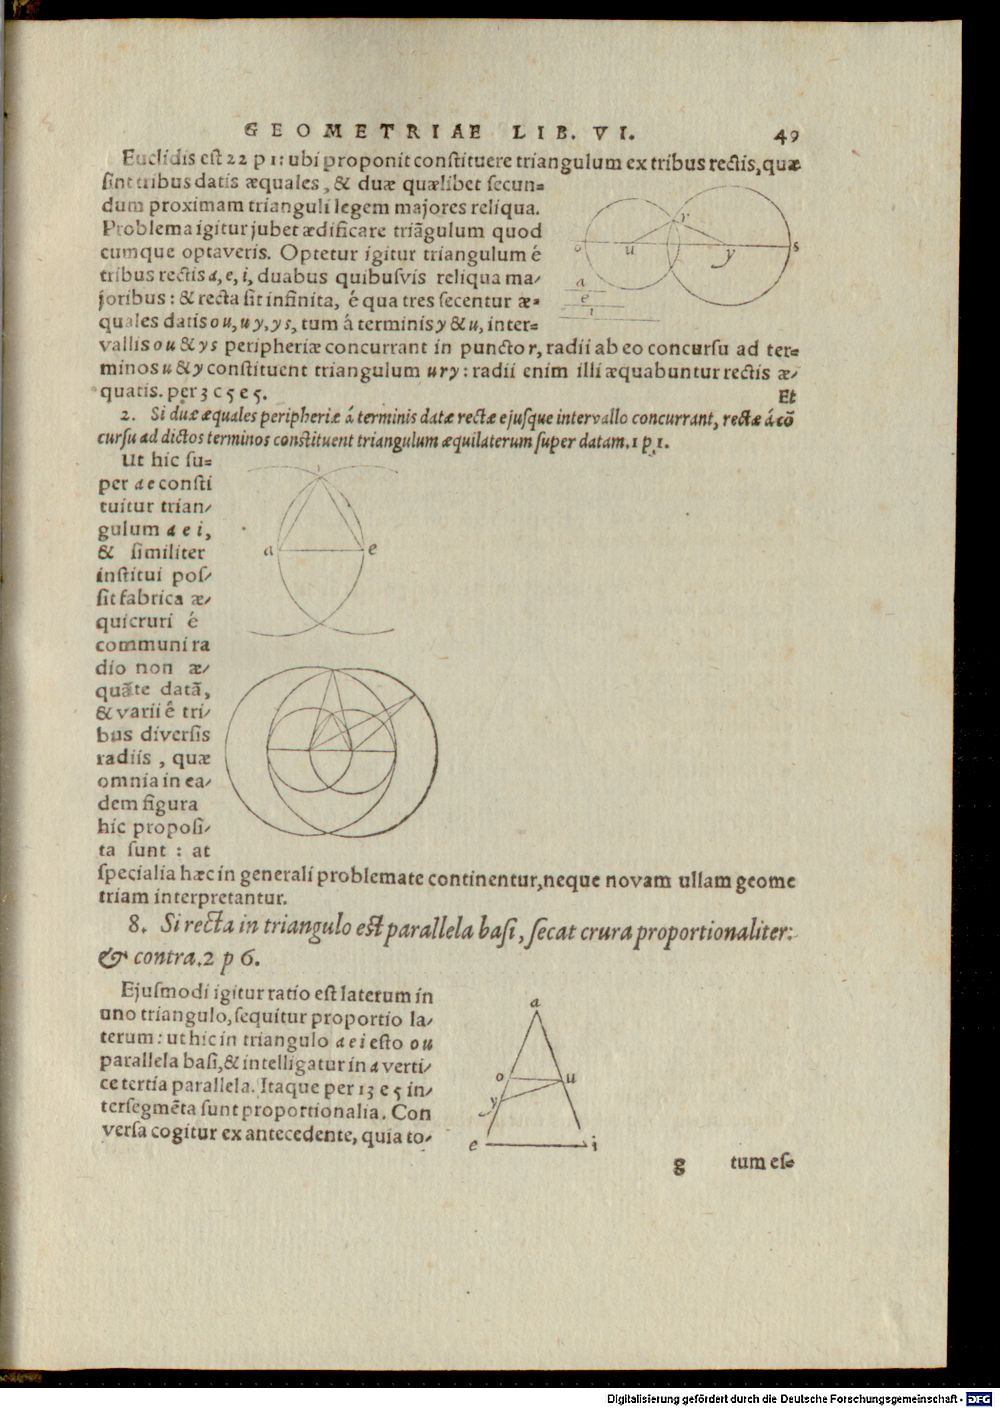 GEOMETRIAE LIB. VI. 49
Euclidis est 22 p 1: ubi proponit constituere triangulum ex tribus rectis, quæ
sint tribus datis æquales, & duæ quælibet secun=
dum proximam trianguli legem majores reliqua.
Problema igitur jubet ædificare triãgulum quod
cumque optaveris. Optetur igitur triangulum é
tribus rectis a, e, i, duabus quibusvis reliqua ma/
joribus: & recta sit infinita, é qua tres secentur æ=
quales datis o u, u y, y s, tum á terminis y & u, inter=
vallis o u & y s peripheriæ concurrant in puncto r, radii ab eo concursu ad ter=
minos u & y constituent triangulum u r y: radii enim illi æquabuntur rectis æ/
quatis. per 3 c 5 e 5.
Et
r
o u y s
a
e
i
2. Si duæ æquales peripheriæ á terminis datæ rectæ ejusque intervallo concurrant, rectæ á cõ
cursu ad dictos terminos constituent triangulum æquilaterum super datam. 1 p 1.
Ut hic su=
per a e consti
tuitur trian/
gulum a e i,
& similiter
institui pos/
sit fabrica æ/
quicruri é
communi ra
dio non æ/
quãte datã,
& varii ê tri/
bus diversis
radiis, quæ
omnia in ea/
dem figura
hic proposi/
ta sunt: at
i
a e
specialia hæc in generali problemate continentur, neque novam ullam geome
triam interpretantur.
8. Si recta in triangulo est parallela basi, secat crura proportionaliter:
& contra. 2 p 6.
Ejusmodi igitur ratio est laterum in
uno triangulo, sequitur proportio la/
terum: ut hic in triangulo a e i esto o u
parallela basi, & intelligatur in a verti/
ce tertia parallela. Itaque per 13 e 5 in/
tersegmẽta sunt proportionalia. Con
versa cogitur ex antecedente, quia to/
a
o u
y
e i
g tum es=
Digitalisierung gefördert durch die Deutsche Forschungsgemeinschaft - DFG